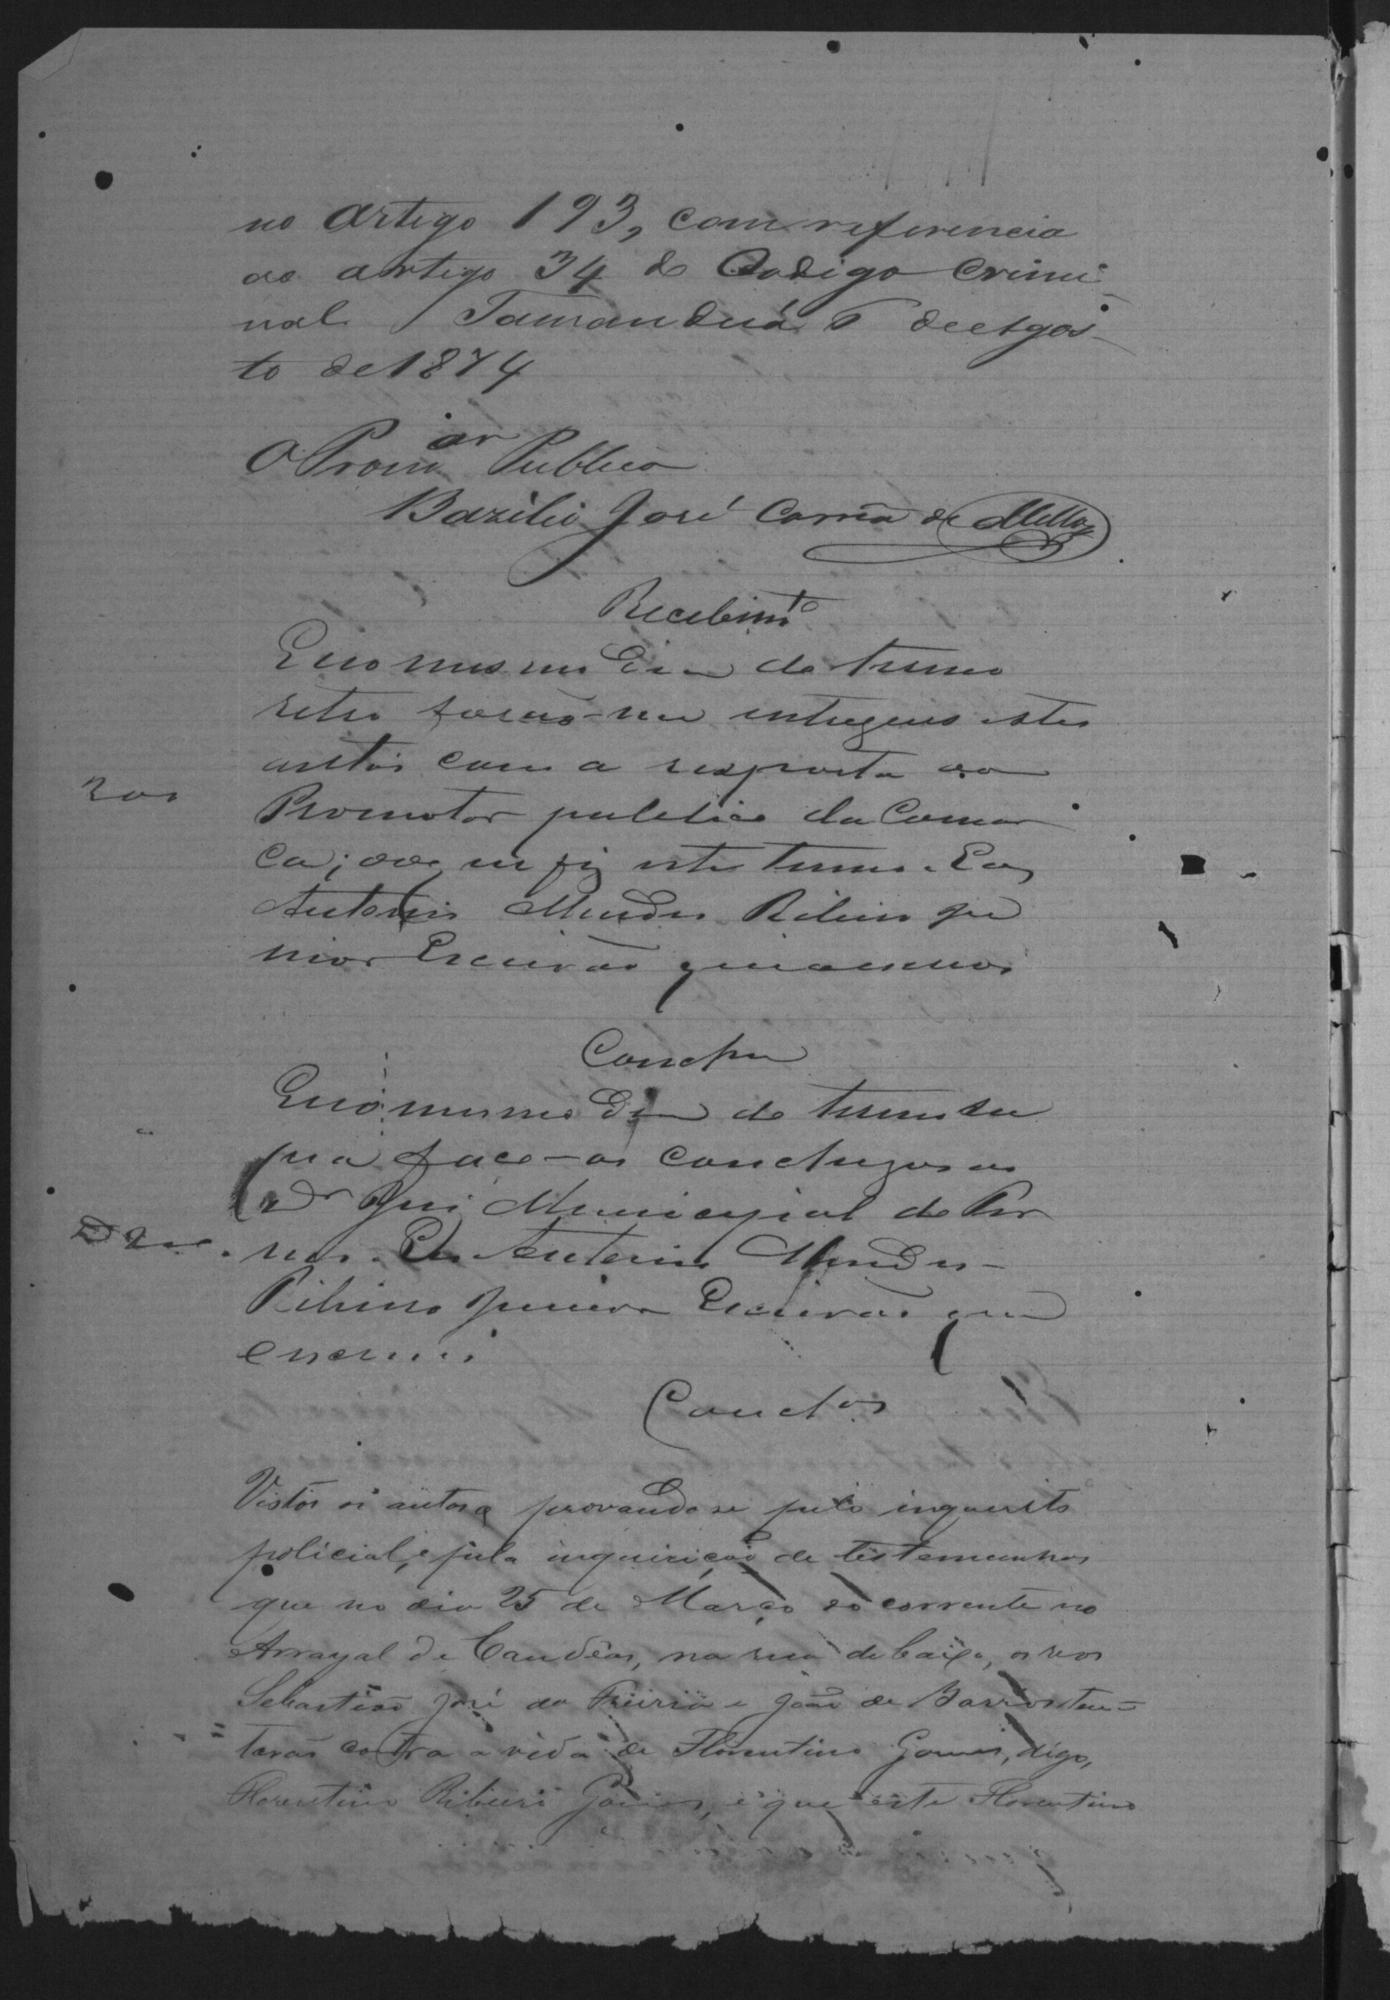 no artigo 193, com referencia
ao artigo 34 do Codigo Crimi-
nal. Tamanduá 6 de Agos-
to de 1874
O Prom.or Publico
Bazilio José Corrêa de Mello
Recebim.to
E no mesmo dia do termo
retro forão-me entregues estes
autos com a resposta do
Promotor publico da Comar
ca; do q. fiz este termo. Eu
Antonio Mendes Ribeiro Ju
nior Escrivão que escrevi
200
Conclu
E no mesmo dia do termo su
pra faço-os concluzos ao
Dr Juiz Municipal do Ter
mo. Eu Antonio Mendes
Ribeiro Junior Escrivão que
escrevi
Conclos
Vistos os autos provando se pelo inquerito
policial, e pela inquirição de testemunhas
que no dia 25 de Março do corrente no
Arrayal de Candêas, na rua de baixo, os reos
Sebastião José de Freiria e João de Barros ten-
tarão contra a vida de Florentino Gomes, digo,
Florentino Ribeiro Gomes, e que este Florentino